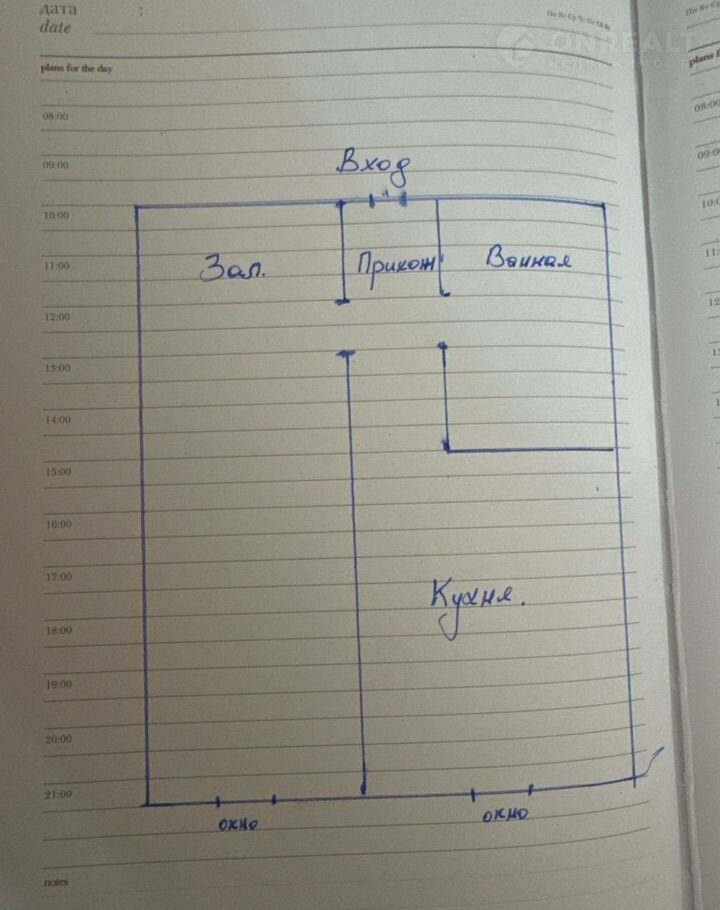 дата :
date
Пн Вт Ср Чт Пт Сб Вс
ONREALT
plans for the day
08:00
09:00
Вход
10:00
Зал. Прихож Ванная
11:00
12:00
13:00
14:00
15:00
16:00
17:00
Кухня.
18:00
19:00
20:00
21:00
окно окно
notes
Пн Вт Ср
plans f
08:00
09:00
10:0
11:
12